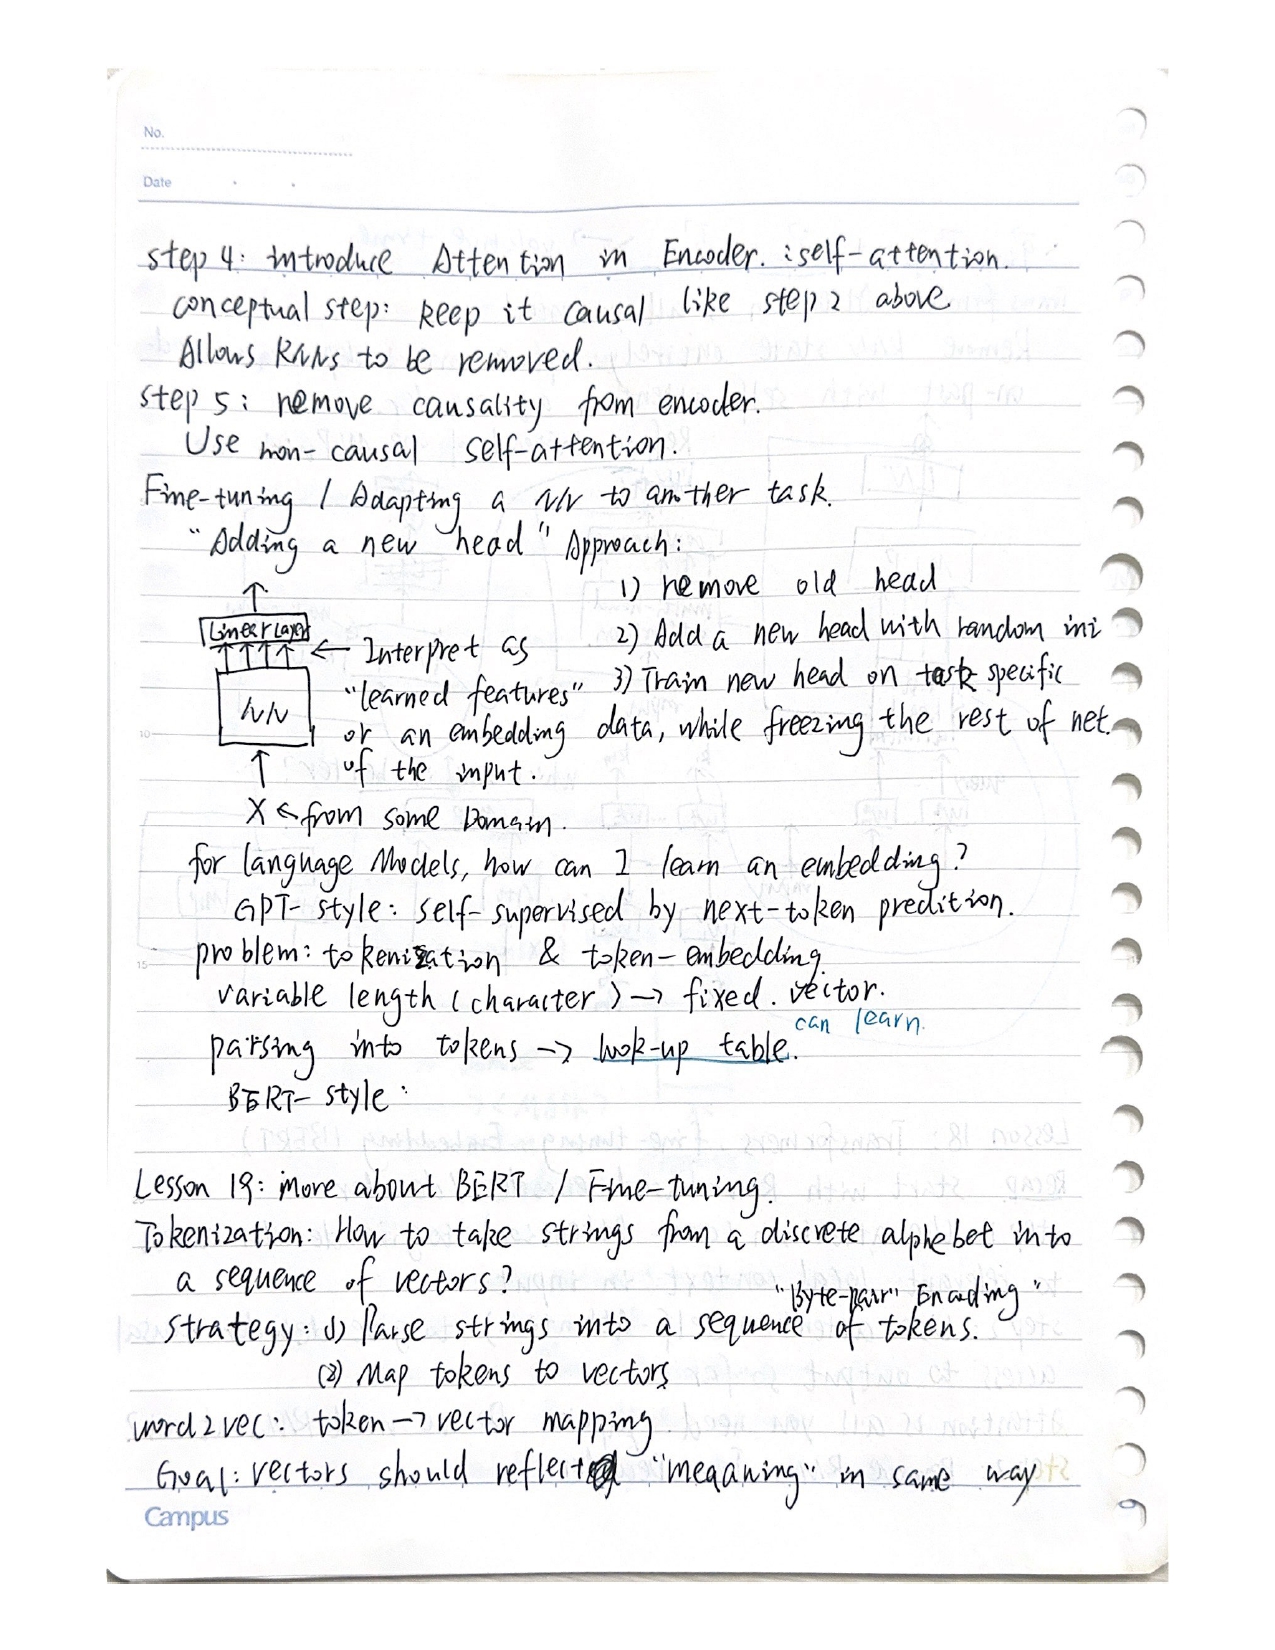 No.
Date
step 4: introduce Attention in Encoder. : self-attention.
conceptual step: keep it causal like step 2 above
Allows RNNs to be removed.
step 5: remove causality from encoder.
Use non-causal self-attention.
Fine-tuning / Adapting a NN to another task.
"Adding a new head" Approach:
1) remove old head
2) Add a new head with random ini
3) Train new head on task specific
data, while freezing the rest of net.
Linear Layer
← Interpret as
"learned features"
or an embedding
of the input.
NN
X ← from some Domain.
for language Models, how can I learn an embedding?
GPT-style: self-supervised by next-token predition.
problem: tokenization & token-embedding
variable length (character) → fixed. vector.
can learn.
parsing into tokens → look-up table.
BERT-style:
Lesson 19: more about BERT / Fine-tuning.
Tokenization: How to take strings from a discrete alphebet into
a sequence of vectors?
"Byte-pair" Encoding"
strategy: (1) Parse strings into a sequence of tokens.
(2) Map tokens to vectors
word2vec: token → vector mapping
Goal: vectors should reflect "meqaning" in same way
Campus